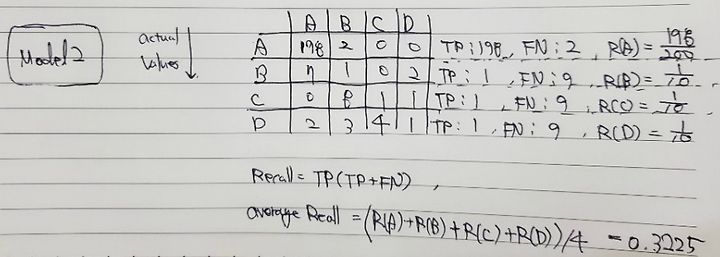 A B C D
Model 2
actual values ↓
A 198 2 0 0 TP:198, FN:2, R(A) = 198/200
B 7 1 0 2 TP:1, FN:9, R(B) = 1/10
C 0 8 1 1 TP:1, FN:9, R(C) = 1/10
D 2 3 4 1 TP:1, FN:9, R(D) = 1/10
Recall = TP(TP+FN),
average Recall = (R(A)+R(B)+R(C)+R(D))/4 = 0.3225